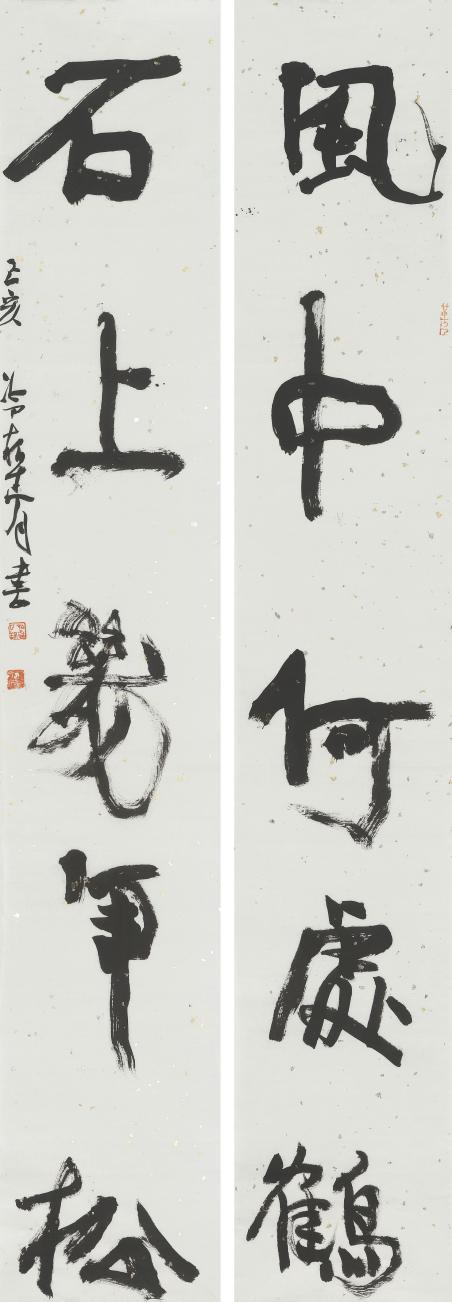 風中何處鶴
石上幾年松
己亥 冷柏青書